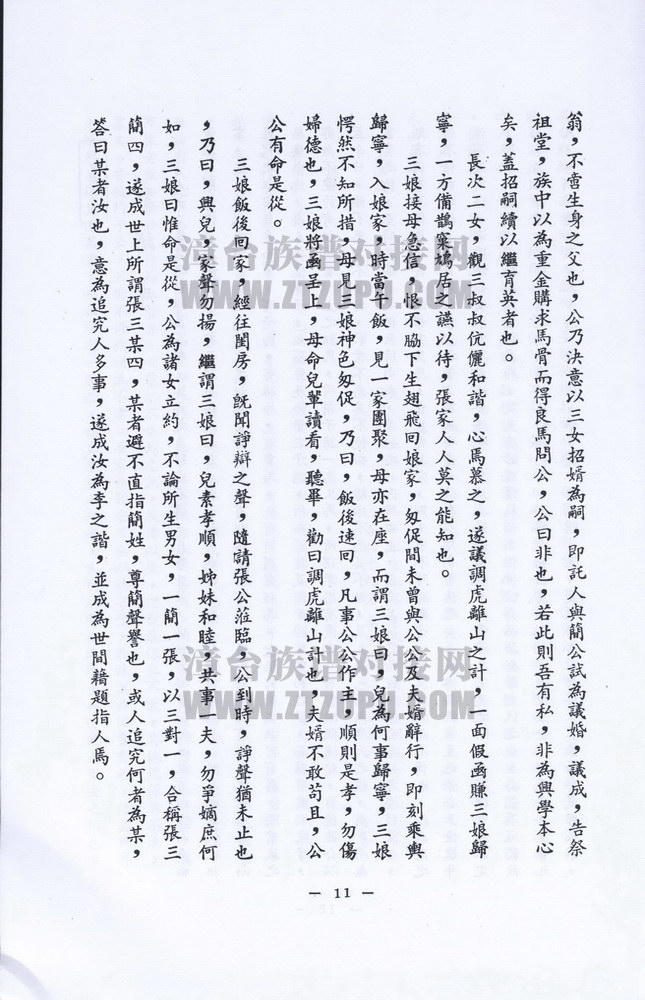 翁，不啻生身之父也，公乃決意以三女招婿為嗣，即託人與簡公試為議婚，議成，告祭
祖堂，族中以為重金購求馬骨而得良馬問公，公曰非也，若此則吾有私，非為興學本心
矣，蓋招嗣續以繼育英者也。
長次二女，觀三叔叔伉儷和諧，心焉慕之，遂議調虎離山之計，一面假函賺三娘歸
寧，一方備鵲窠鳩居之讌以待，張家人人莫之能知也。
三娘接母急信，恨不脇下生翅飛回娘家，匆促間未曾與公公及夫婿辭行，即刻乘輿
歸寧，入娘家，時當午飯，見一家團聚，母亦在座，而謂三娘曰，兒為何事歸寧，三娘
愕然不知所措，母見三娘神色匆促，乃曰，飯後速回，凡事公公作主，順則是孝，勿傷
婦德也，三娘將函呈上，母命兒輩讀看，聽畢，勸曰調虎離山計也，夫婿不敢苟且，公
公有命是從。
三娘飯後回家，經往閨房，旣聞諍辯之聲，隨請張公蒞臨，公到時，諍聲猶未止也
，乃曰，興兒，家聲勿揚，繼謂三娘曰，兒素孝順，姊妹和睦，共事一夫，勿爭嫡庶何
如，三娘曰惟命是從，公為諸女立約，不論所生男女，一簡一張，以三對一，合稱張三
簡四，遂成世上所謂張三某四，某者避不直指簡姓，尊簡聲譽也，或人追究何者為某，
答曰某者汝也，意為追究人多事，遂成汝為李之諧，並成為世間藉題指人焉。
— 11 —
漳台族谱对接网
WWW.ZTZUPU.COM
漳台族谱对接网
WWW.ZTZUPU.COM